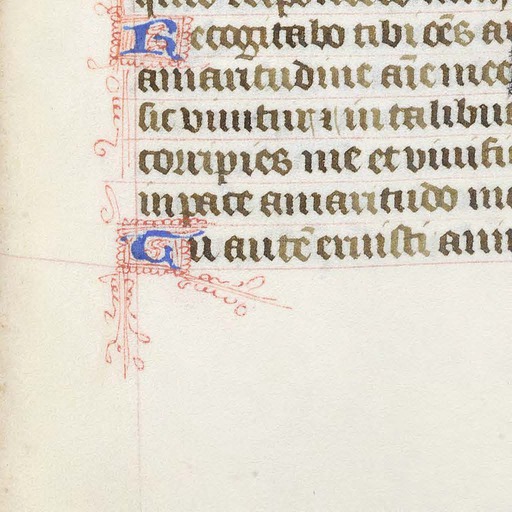 Recogitabo tibi oēs an
amaritudine aīe mee
sic vivitur ⁊ in talibus
corripies me et vivifi
in pace amaritudo me
Tu autē eruisti anim